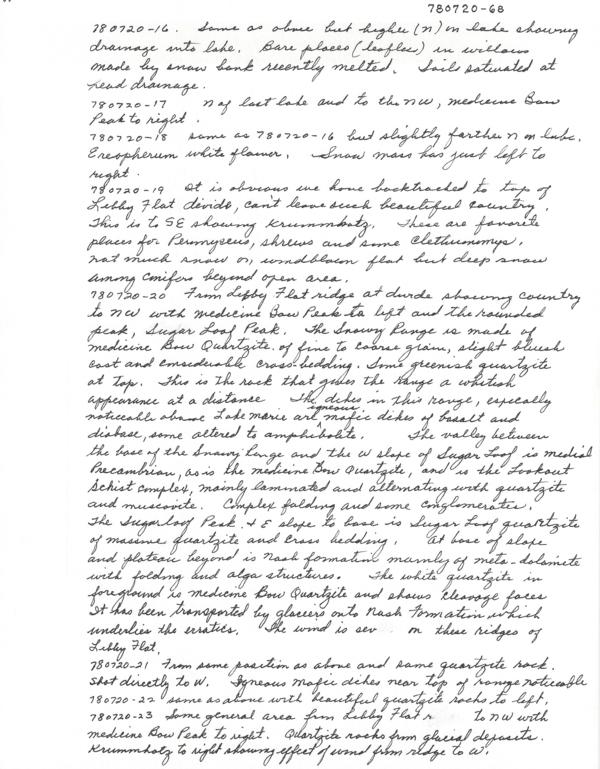 780720-68
780720-16. Same as above but higher (N) on lake showing
drainage into lake. Bare places (leafless) in willows
made by snow bank recently melted. Soils saturated at
head drainage.
780720-17 N of last lake and to the NW, medicine Bow
Peak to right.
780720-18 same as 780720-16 but slightly farther N on lake.
Ereopherum white flower. Snow mass has just left to
right.
780720-19 It is obvious we have backtracked to top of
Libby Flat divide, can't leave such beautiful country.
This is to SE showing Krummholz. These are favorite
places for Peromyscus, shrews and some Clethrionomys.
not much snow on windblown flat but deep snow
among conifers beyond open area.
780720-20 From Libby Flat ridge at divide showing country
to NW with medicine Bow Peak to left and the rounded
peak, Sugar Loaf Peak. The Snowy Range is made of
medicine Bow Quartzite of fine to coarse grain, slight bluish
cast and considerable cross-bedding. Some greenish quartzite
at top. This is the rock that gives the range a whitish
appearance at a distance The dikes in this range, especially
noticeable above Lake Marie are igneous mafic dikes of basalt and
diabase, some altered to amphibolite. The valley between
the base of the Snowy Range and the W slope of Sugar Loaf is medial
Precambrian, as is the medicine Bow Quartzite, and is the Lookout
Schist complex, mainly laminated and alternating with quartzite
and muscovite. Complex folding and some conglomerates.
The Sugarloaf Peak & E slope to base is Sugar Loaf quartzite
of massive quartzite and cross bedding. At base of slope
and plateau beyond is Nash formation mainly of meta-dolomite
with folding and alga structures. The white quartzite in
foreground is medicine Bow Quartzite and shows cleavage faces
It has been transported by glaciers onto Nash Formation which
underlies the erratics. The wind is sev on these ridges of
Libby Flat.
780720-21 From same position as above and same quartzite rock.
Shot directly to W. Igneous Mafic dikes near top of range noticeable
780720-22 same as above with beautiful quartzite rocks to left.
780720-23 Same general area from Libby Flat r to NW with
medicine Bow Peak to right. Quartzite rocks from glacial deposits.
Krummholz to right showing effect of wind from ridge to W.